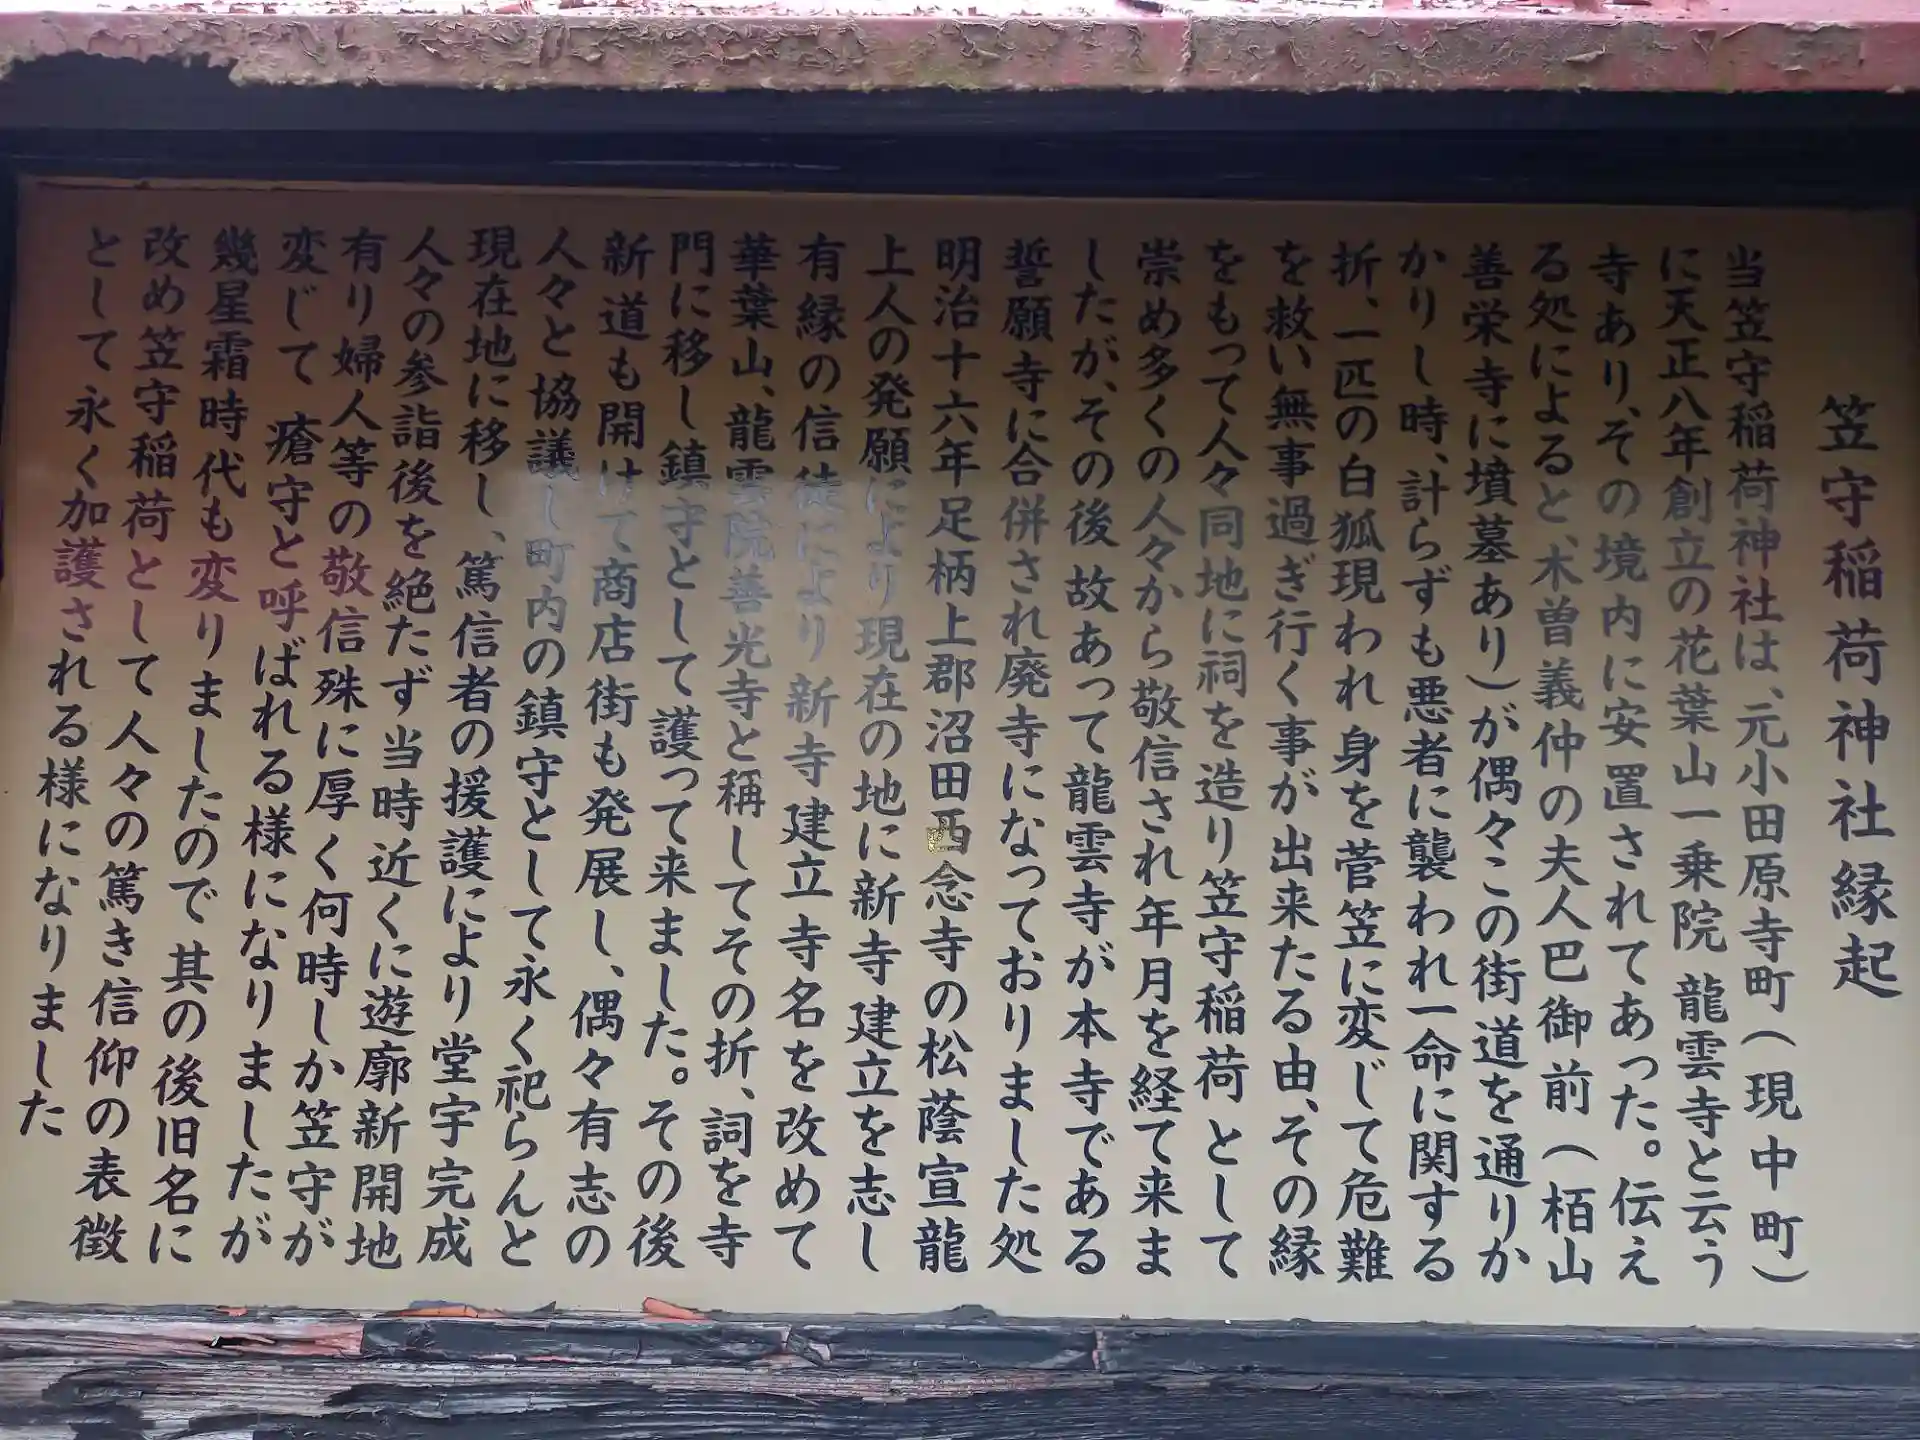 笠守稲荷神社縁起
当笠守稲荷神社は、元小田原寺町(現中町)
に天正八年創立の花葉山一乗院龍雲寺と云う
寺あり、その境内に安置されてあった。伝え
る処によると、木曽義仲の夫人巴御前(栢山
善栄寺に墳墓あり)が偶々この街道を通りか
かりし時、計らずも悪者に襲われ一命に関する
折、一匹の白狐現われ身を菅笠に変じて危難
を救い無事過ぎ行く事が出来たる由、その縁
をもって人々同地に祠を造り笠守稲荷として
崇め多くの人々から敬信され年月を経て来ま
したが、その後故あって龍雲寺が本寺である
誓願寺に合併され廃寺になっておりました処
明治十六年足柄上郡沼田西念寺の松蔭宣龍
上人の発願により現在の地に新寺建立を志し
有縁の信徒により新寺建立寺名を改めて
華葉山、龍雲院善光寺と稱してその折、詞を寺
門に移し鎮守として護って来ました。その後
新道も開けて商店街も発展し、偶々有志の
人々と協議し町内の鎮守として永く祀らんと
現在地に移し、篤信者の援護により堂宇完成
人々の参詣後を絶たず当時近くに遊廓新開地
有り婦人等の敬信殊に厚く何時しか笠守が
変じて瘡守と呼ばれる様になりましたが
幾星霜時代も変りましたので其の後旧名に
改め笠守稲荷として人々の篤き信仰の表徴
として永く加護される様になりました